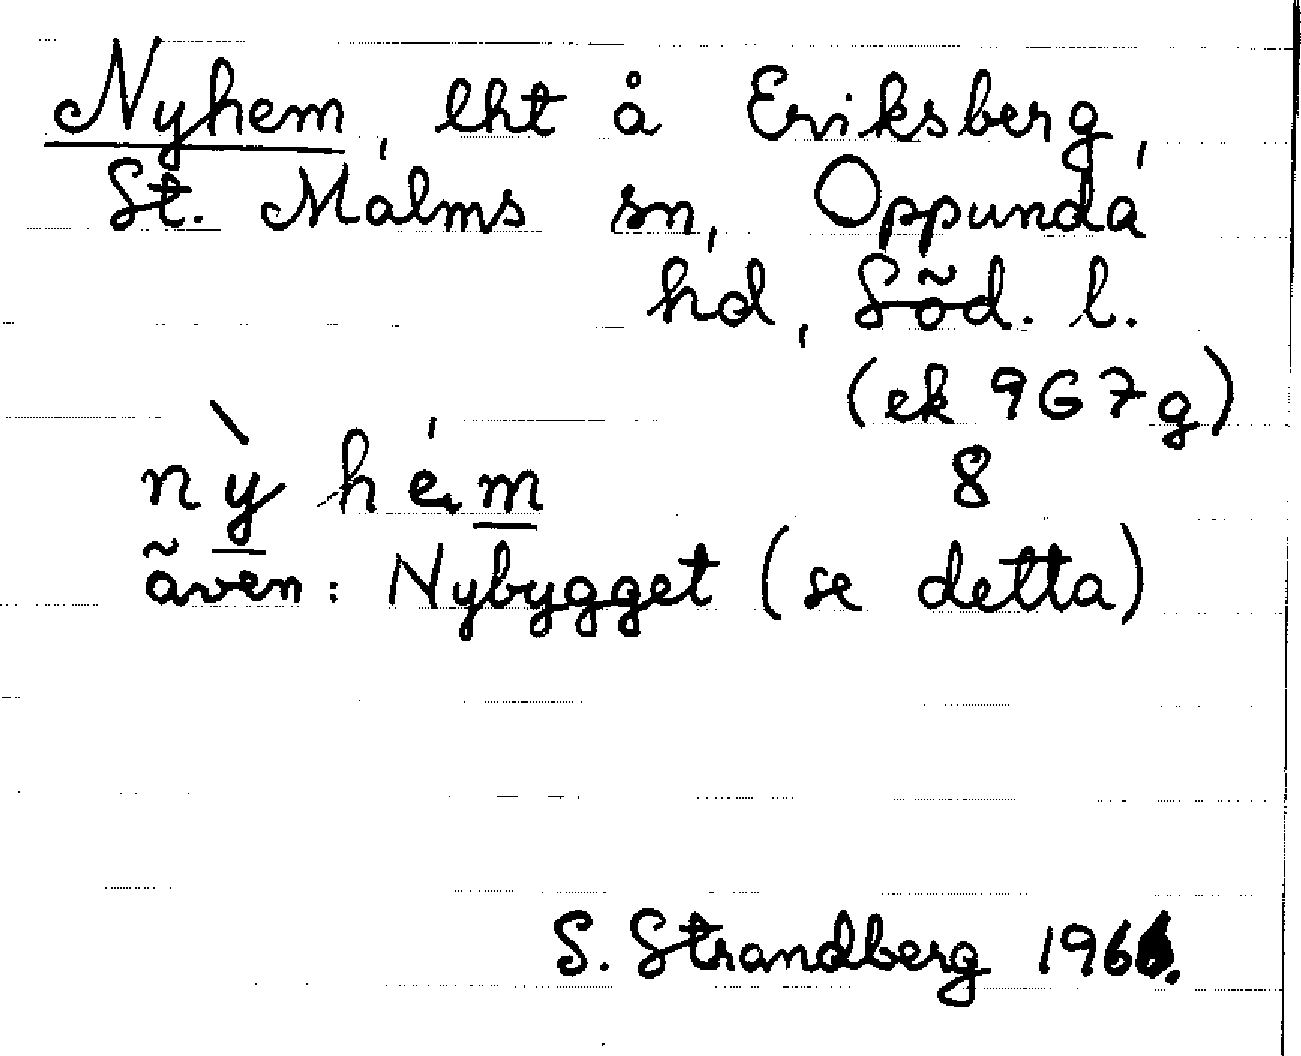 Nyhem, lht å Eriksberg,
St. Malms sn, Oppunda
hd, Söd. l.
(ek 9G7g)
8
nỳhé.m
även: Nybygget (se detta)
S. Strandberg 1966.